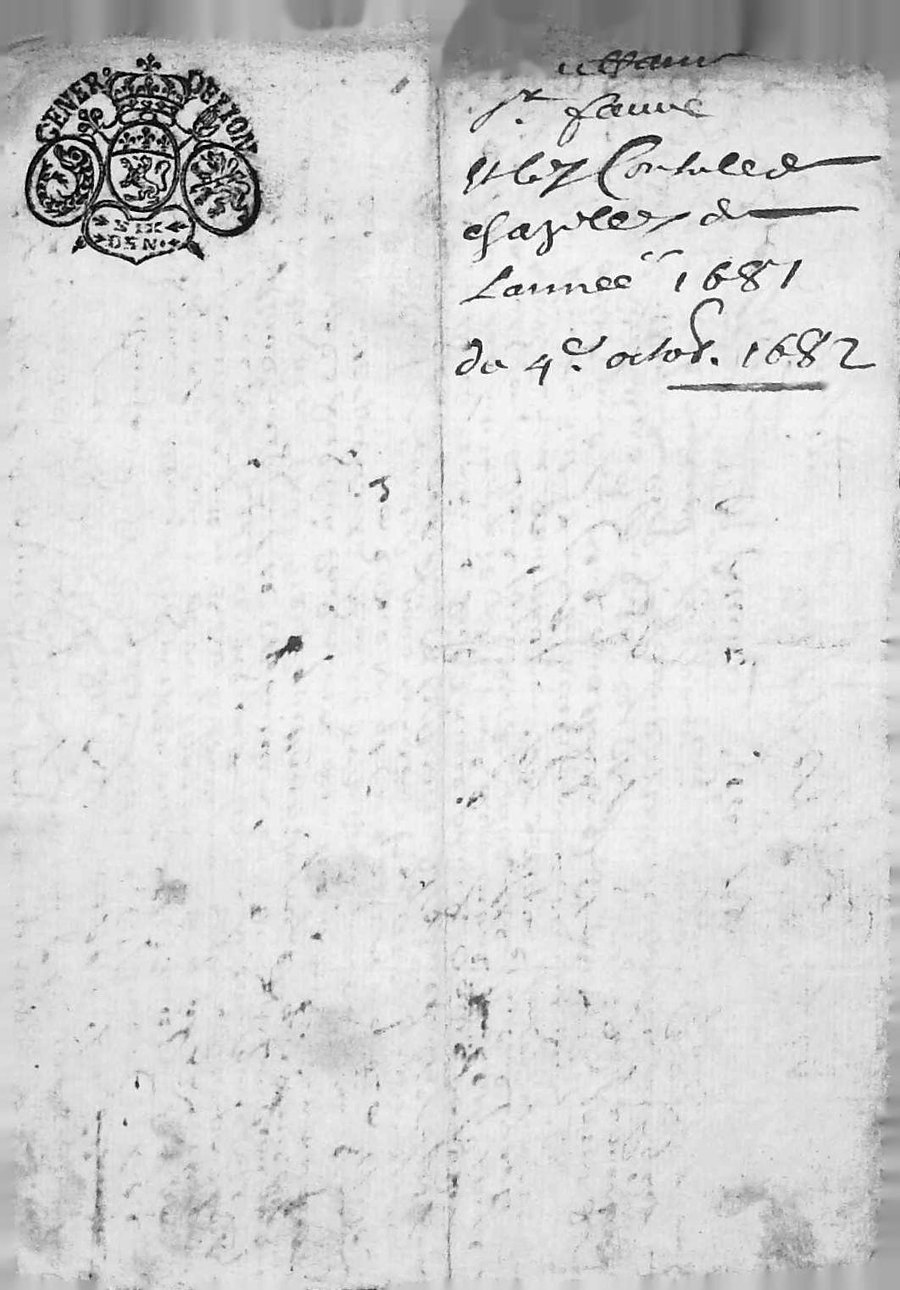 GENER DE LYON
SIX
DEN.
Sr. faure
Et les Consulz de
chazelles de
Lannee 1681
du 4e. octob. 1682